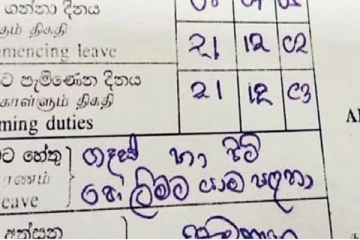 ගන්නා දිනය
கும் திகதி
mencing leave 21 12 02
ට පැමිණෙන දිනය
கொள்ளும் திகதி 21 12 03
ming duties
ට හේතු ගෑස් හා පිටි
ාரணம்
eave ලිමට යාම සඳහා
අත්සන